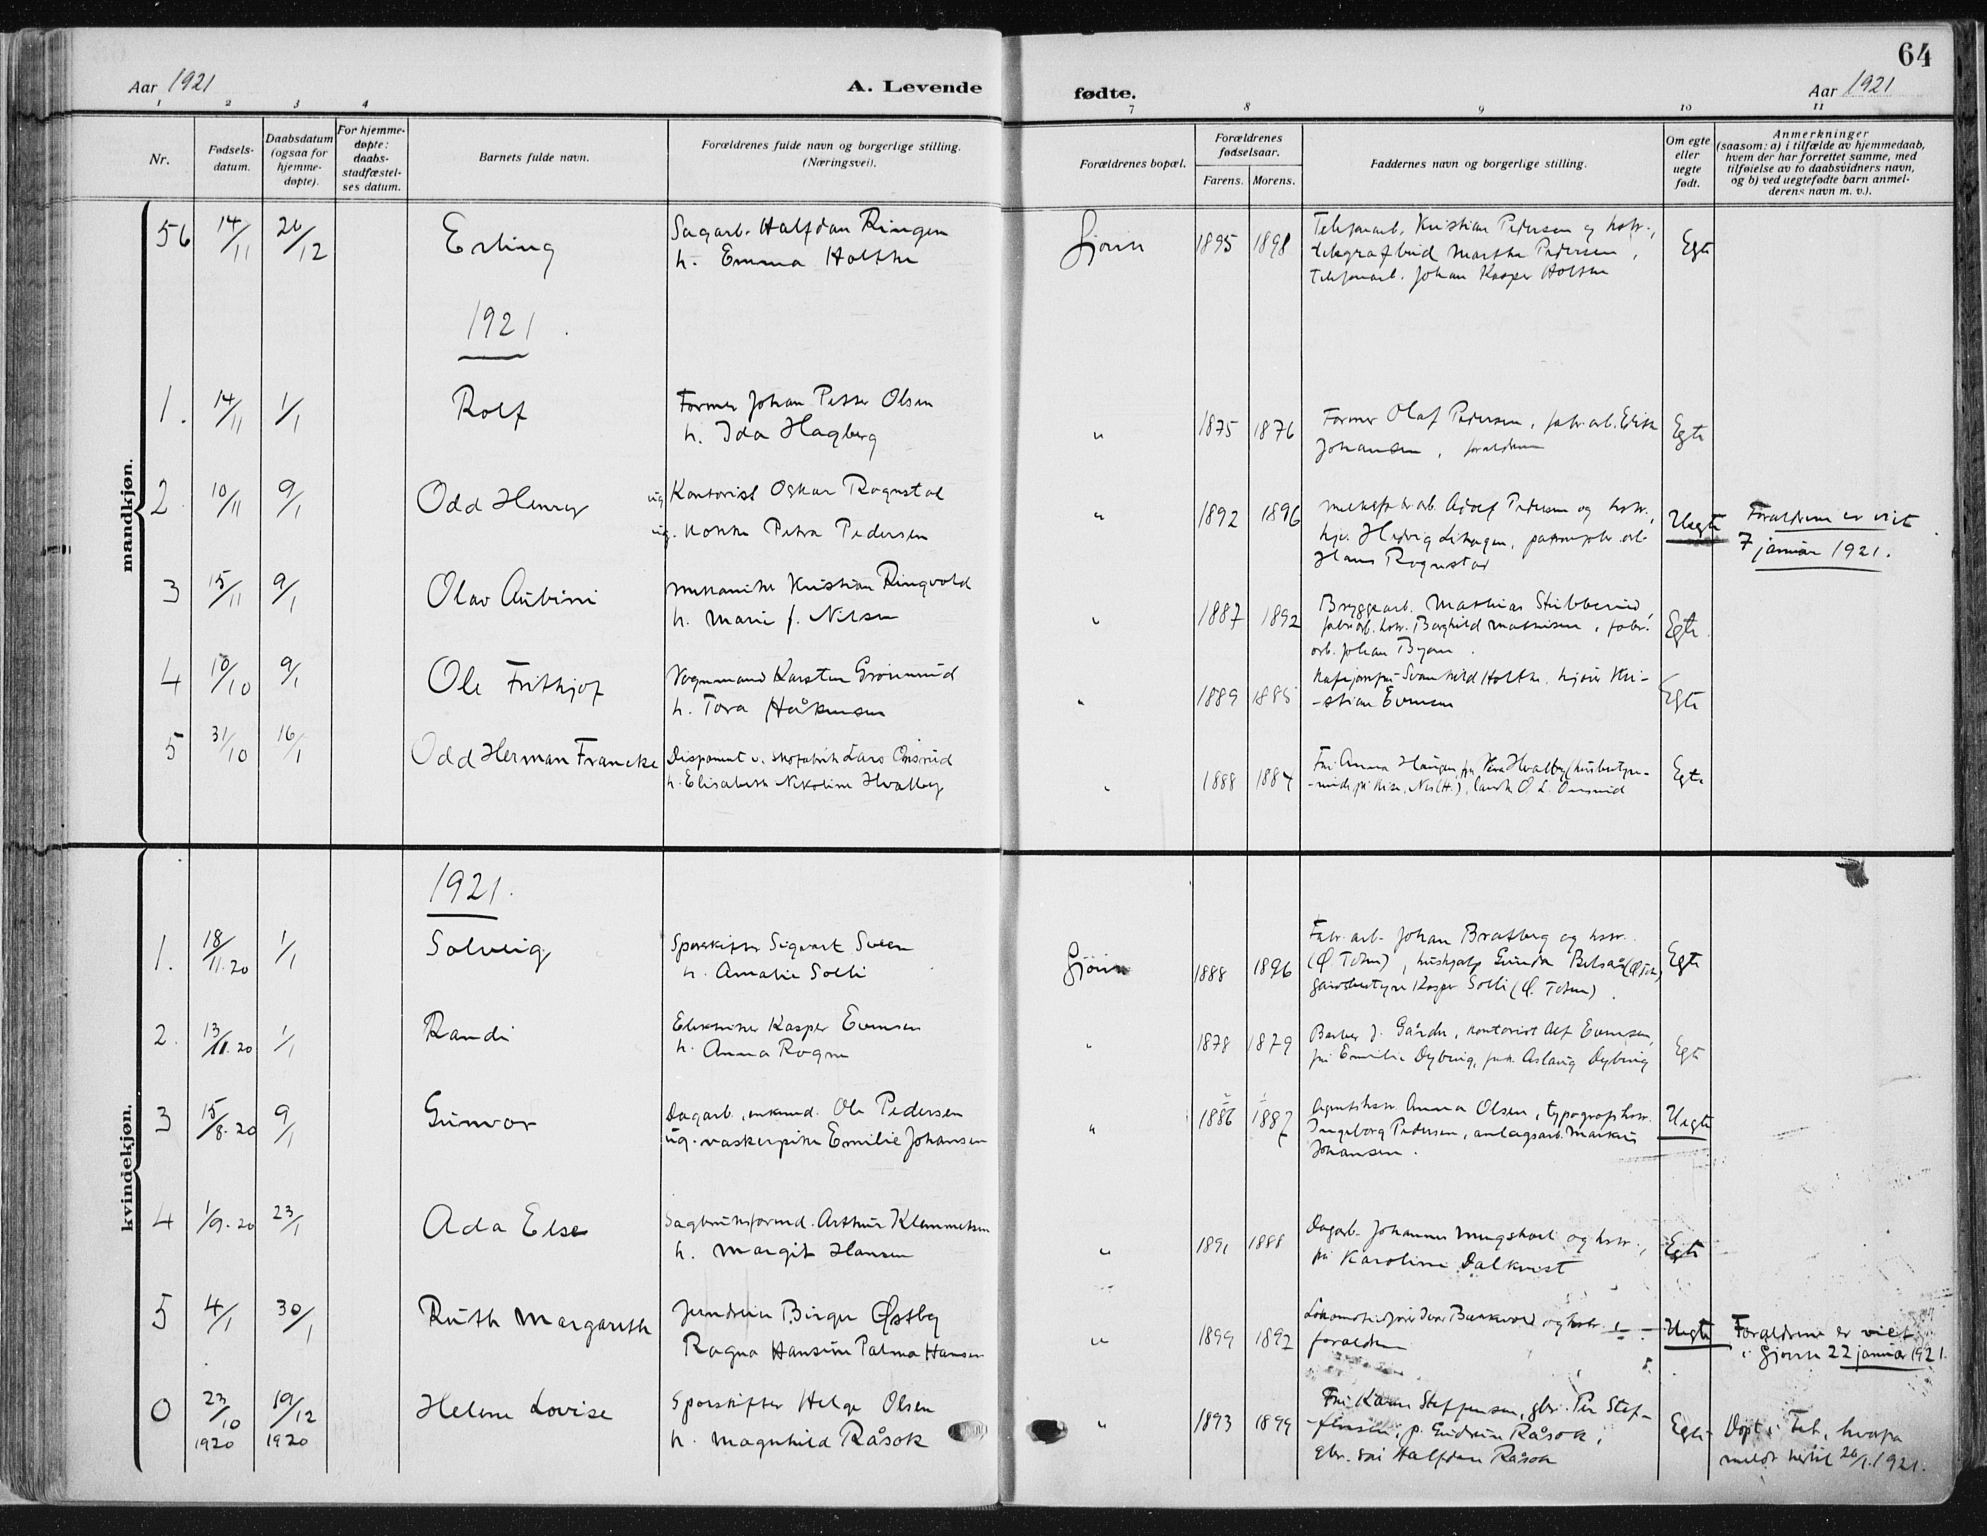 64
Aar 1921
A. Levende
fødte.
Aar 1921
1 2 3 4
7 8 9 10 11
Nr.
Fødsels-
datum.
Daabsdatum
(ogsaa for
hjemme-
døpte).
For hjemme-
døpte:
daabs-
stadfæstel-
ses datum.
Barnets fulde navn.
Forældrenes fulde navn og borgerlige stilling.
(Næringsvei).
Forældrenes bopæl.
Forældrenes
fødselsaar.
Farens. Morens.
Faddernes navn og borgerlige stilling.
Om egte
eller
uegte
født.
Anmerkninger
(saasom: a) i tilfælde av hjemmedaab,
hvem der har forrettet samme, med
tilføielse av to daabsvidners navn,
og b) ved uegtefødte barn anmel-
derens navn m. v.).
mandkjøn.
56 14/11 26/12 Erling
Sagarb. Halfdan Ringen
h. Emma Holthe
Gjøvik 1895 1898
Telefonarb. Kristian Pedersen og hstr.,
telegrafbud Marthe Pedersen,
telefonarb. Johan Kasper Holthe
Egte
1921.
1. 14/11 1/1 Rolf
Former Johan Petter Olsen
h. Ida Hagberg
" 1875 1876
Former Olaf Pedersen, fabr.arb.
Johansen, forældrene
Egte
2 10/11 9/1 Odd Henry
ug. Kontorist Oskar Rognstad
ug. Kokke Petra Pedersen
" 1892 1896
arb. Adolf Pedersen og hstr.,
Hedvig
Hans Rognstad
Uegte
Forældrene er viet
7 januar 1921.
3 15/11 9/1 Olav
Mekaniker Kristian Ringvold
h. Marie f. Nilsen
" 1887 1892
Bryggearb. Mathias Stubberud,
fabr.arb. hstr. Borghild Mathisen, fabr.
arb. Johan
Egte.
4 10/10 9/1 Ole Frithjof
Vognmand Karsten Grønnerud
h. Tora Håkensen
" 1889 1885
Svanhild Holthe, Kri-
-stian Evensen
Egte
5 31/10 16/1 Odd Herman Francke
Disponent v. skofabrik Lars Onsrud
h. Elisabeth Nikoline Hvalby
" 1888 1884
Frk. Anna Haugen, Hvalby
O. L. Onsrud
Egte
kvindekjøn.
1921.
1. 18/11.20 1/1 Solveig
Sporskifter Sigvart Sveen
h. Amalie Solli
Gjøvik 1888 1896
Fabr. arb. Johan Bratberg og hstr.
(Ø. Toten), hushjælp Gunda
Kasper Solli (Ø. Toten).
Egte
2. 13/11.20 1/1 Randi
Elektriker Kasper Evensen
h. Anna Rogne
" 1878 1879
Barber J. Gårder, kontorist Alf Evensen,
fru Emilie Dybvig, frk. Aslaug Dybvig
Egte
3 15/8.20 9/1 Gunvor
Dagarb., enkemd. Ole Pedersen
ug. vaskerpike Emilie Johansen
" 1886 1887
Agenthstr. Anna Olsen, typografhstr.
Ingeborg Pedersen, anlægsarb. Markus
Johansen.
Uegte
4 1/9.20 23/1 Ada Else
Sagbruksformd. Arthur Klemmetsen
h. Margit Hansen
" 1891 1888
Dagarb. Johannes og hstr.,
fru Karoline Dalkvist
Egte
5 4/1 30/1 Ruth Margareth
Birger Østby
Ragna Hansine Palma Hansen
" 1899 1892
og hstr.
forældrene
Uegte
Forældrene er viet
i Gjøvik 22 januar 1921.
0 23/10 1920 19/12 1920 Helene Lovise
Sporskifter Helge Olsen
h. Magnhild Råsok
" 1893 1899
Fru Karen Steffensen, gbr. Per Stef-
-fensen, p. Gudrun Råsok,
gbr. søn Halfdan Råsok
Egte
Døpt i hvorfra
meldt hertil 26/1.1921.